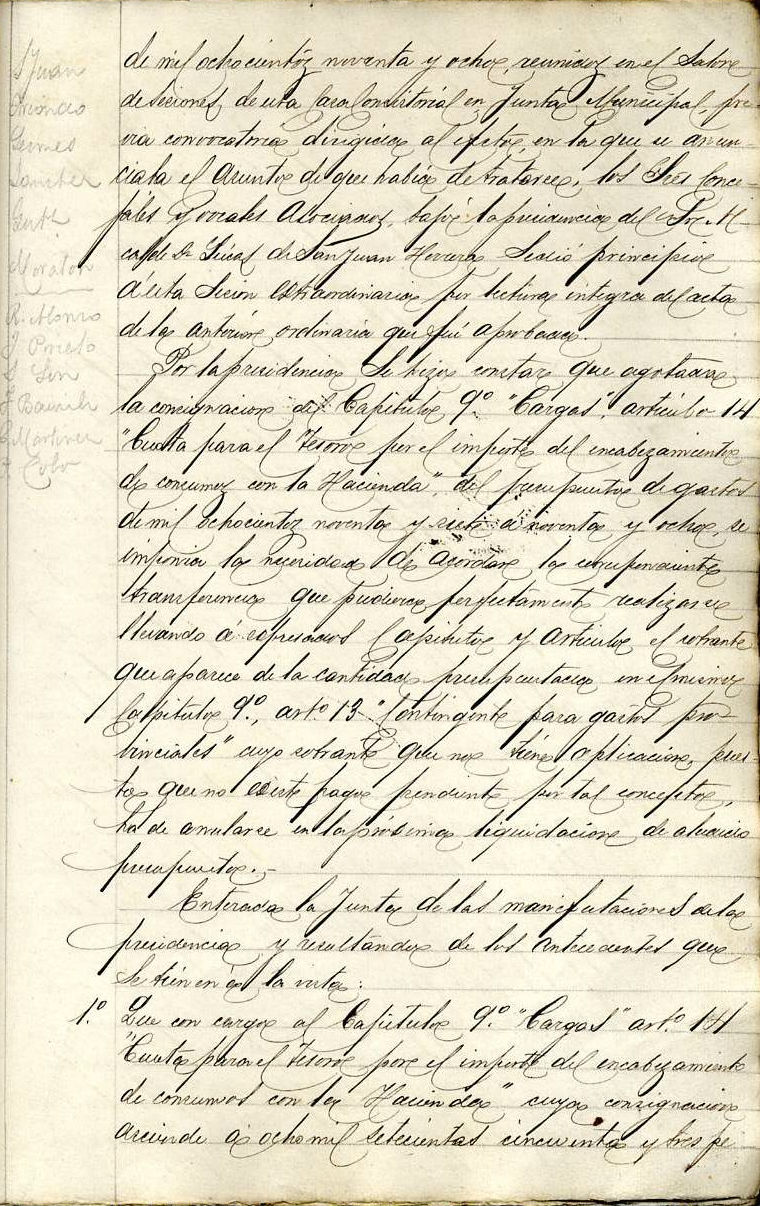 S Juan
Gomez
Sanchez
Moraton
R. Alonso
J. Prieto
Martinez
Cobo
de mil ochocientos noventa y ocho, reunidos en el Salon
de seciones de esta Casa Consistorial en Junta Municipal pre-
via convocatoria dirigida al efecto, en la que se anun-
ciaba el asunto de que habia de tratarse, los Sres Conce-
jales y vocales Asociados, bajo la presidencia del Sr. Al-
calde Dn Lúcas de San Juan Herrera. Se dió principio
a esta secion extraordinaria por lectura integra del acta
de la anterior ordinaria que fué aprobada.
Por la presidencia se hizo constar que agotada
la consignacion del Capitulo 9º "Cargas", articulo 14
"Cuota para el Tesoro por el importe del encabezamiento
de consumos con la Hacienda", del presupuesto de gastos
de mil ochocientos noventa y siete a noventa y ocho, se
imponia la necesidad de acordar la correspondiente
transferencia que pudiera perfectamente realizarse
llevando á expresados Capitulo y articulo el sobrante
que aparece de la cantidad presupuestada en el mismo
Capitulo 9º, artº 13 "Contingente para gastos pro-
vinciales" cuyo sobrante que no tiene aplicacion, pues-
to que no existe pago pendiente por tal concepto,
ha de anularse en la próxima liquidacion de aludido
presupuesto.-
Enterada la Junta de las manifestaciones de la
presidencia y resultando de los antecedentes que
se tienen á la vista:
1º Que con cargo al Capitulo 9º "Cargas" artº 14
"Cuota para el Tesoro por el importe del encabezamiento
de consumos con la Hacienda" cuya consignacion
asciende á ocho mil setecientas cincuenta y tres pe-